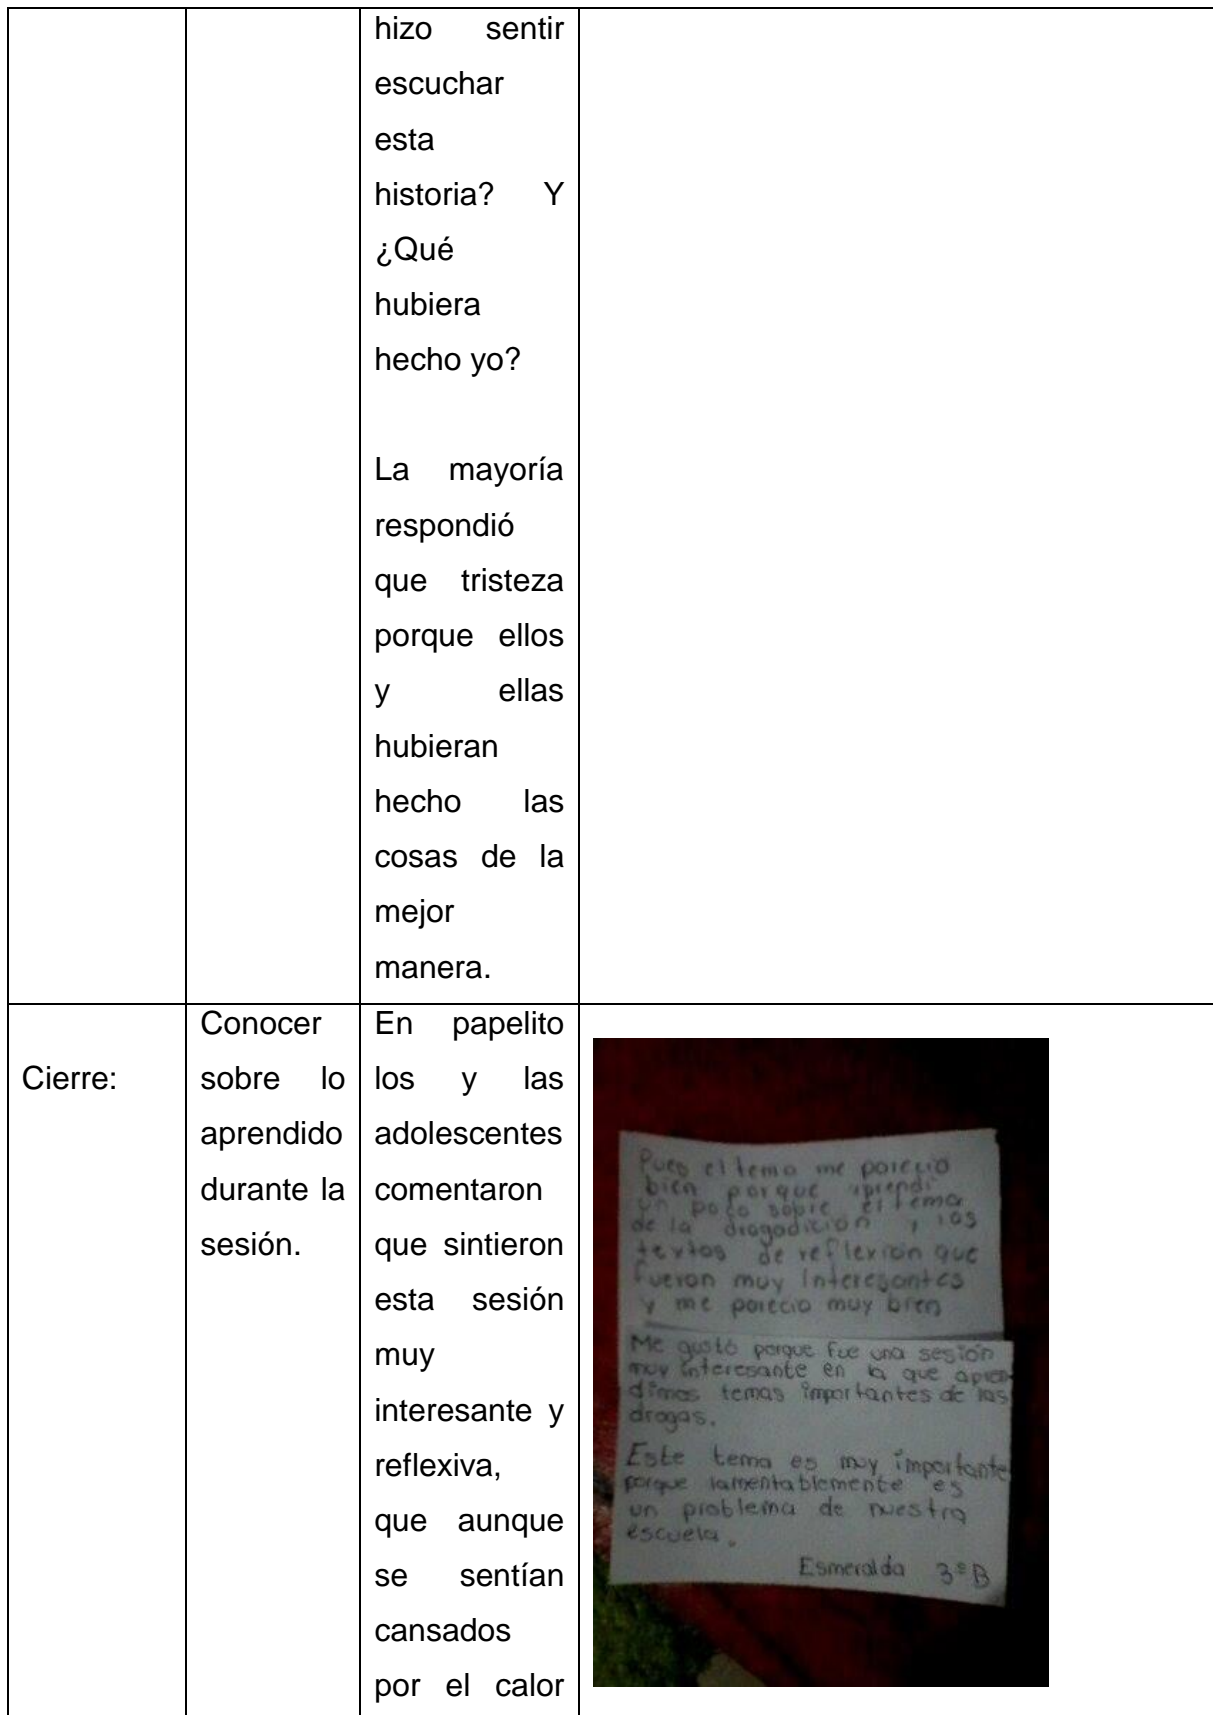 hizo sentir
escuchar
esta
historia? Y
¿Qué
hubiera
hecho yo?
La mayoría
respondió
que tristeza
porque ellos
y ellas
hubieran
hecho las
cosas de la
mejor
manera.
Cierre:
Conocer
sobre lo
aprendido
durante la
sesión.
En papelito
los y las
adolescentes
comentaron
que sintieron
esta sesión
muy
interesante y
reflexiva,
que aunque
se sentían
cansados
por el calor
Pues el tema me parecio
bien porque aprendi
un poco sobre el tema
de la drogadicion y los
textos de reflexion que
fueron muy interesantes
y me parecio muy bien
Me gustó porque fue una sesión
muy interesante en la que apren
dimos temas importantes de las
drogas.
Este tema es muy importante
porque lamentablemente es
un problema de nuestra
escuela.
Esmeralda 3º B